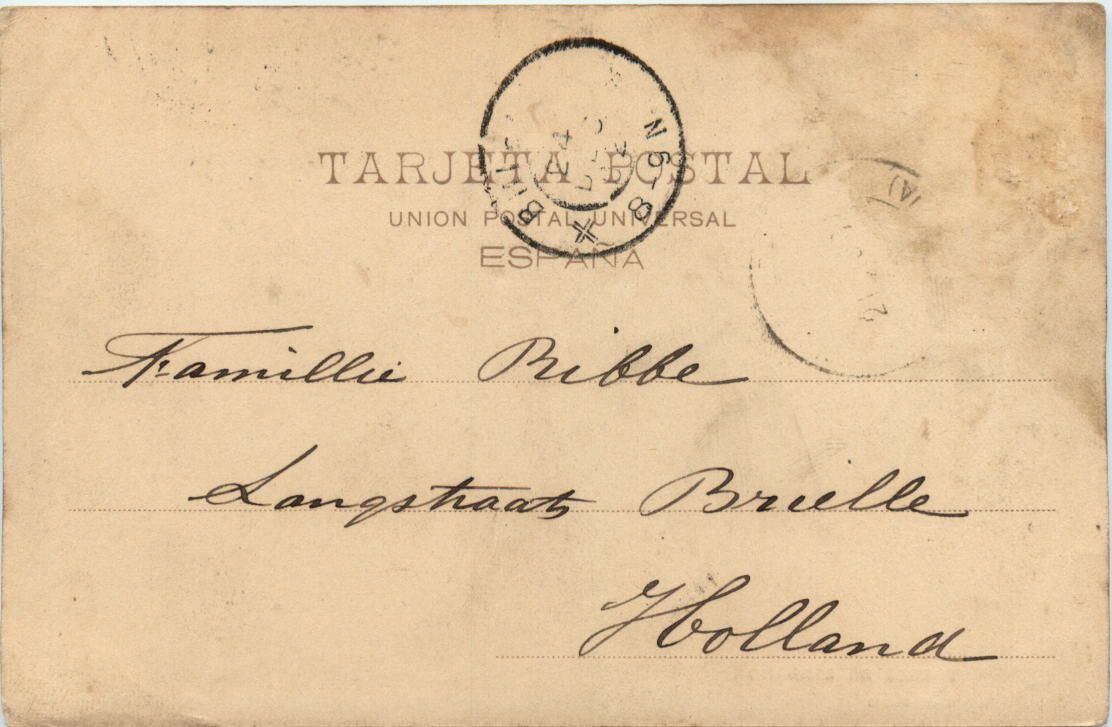 TARJETA POSTAL
UNION POSTAL UNIVERSAL
ESPAÑA
6-8 N
24
Famillie Ribbe
Langstraat Brielle
Holland